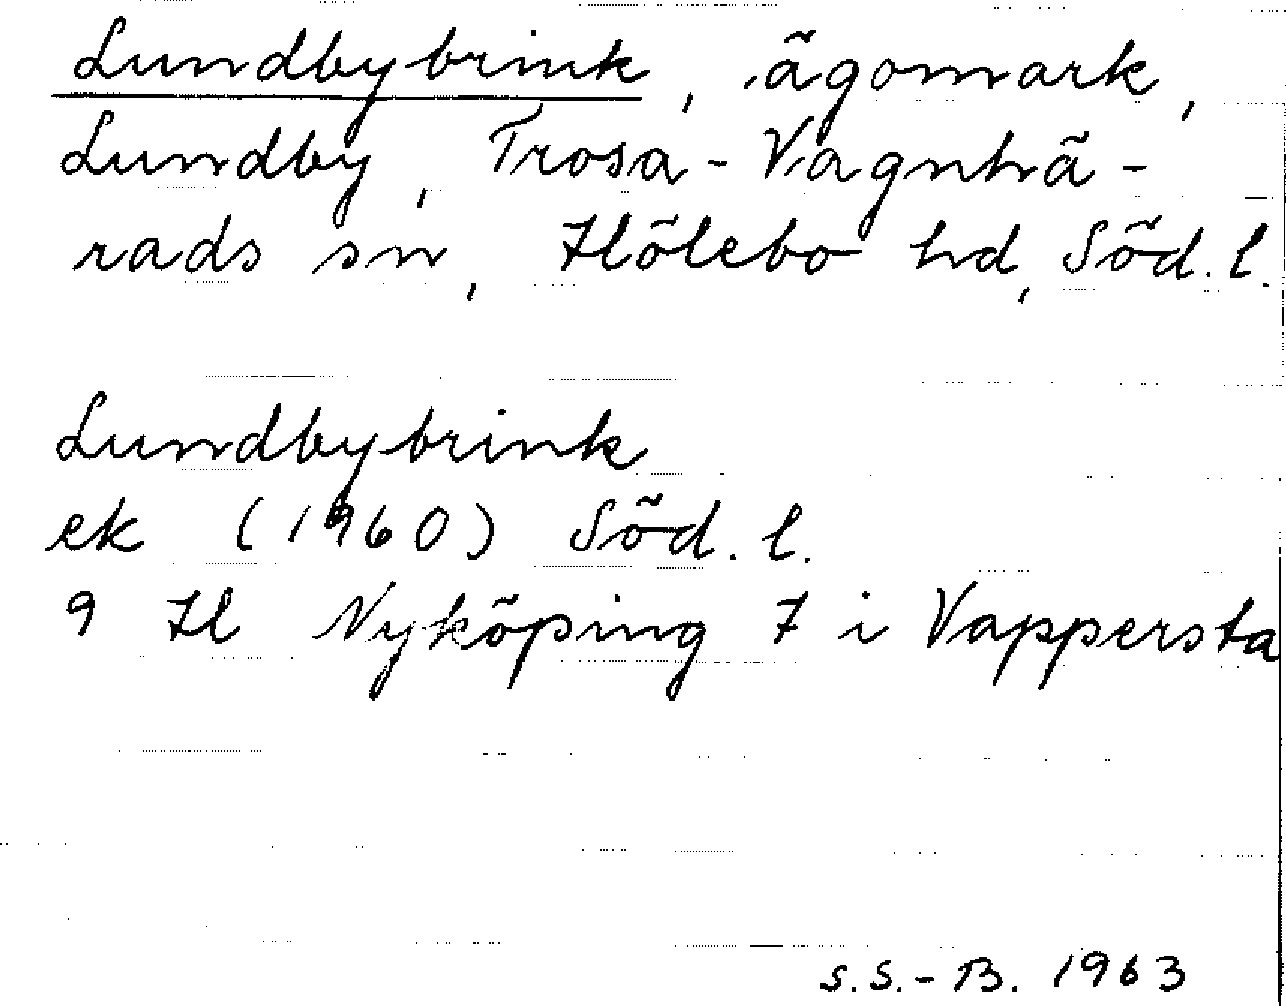 Lundbybrink, ägomark,
Lundby, Trosa-Vagnhä-
rads sn, Hölebo hd, Söd. l.
Lundbybrink
ek (1960) Söd. l.
9 Hl Nyköping 7 i Vappersta
S.S.-B. 1963